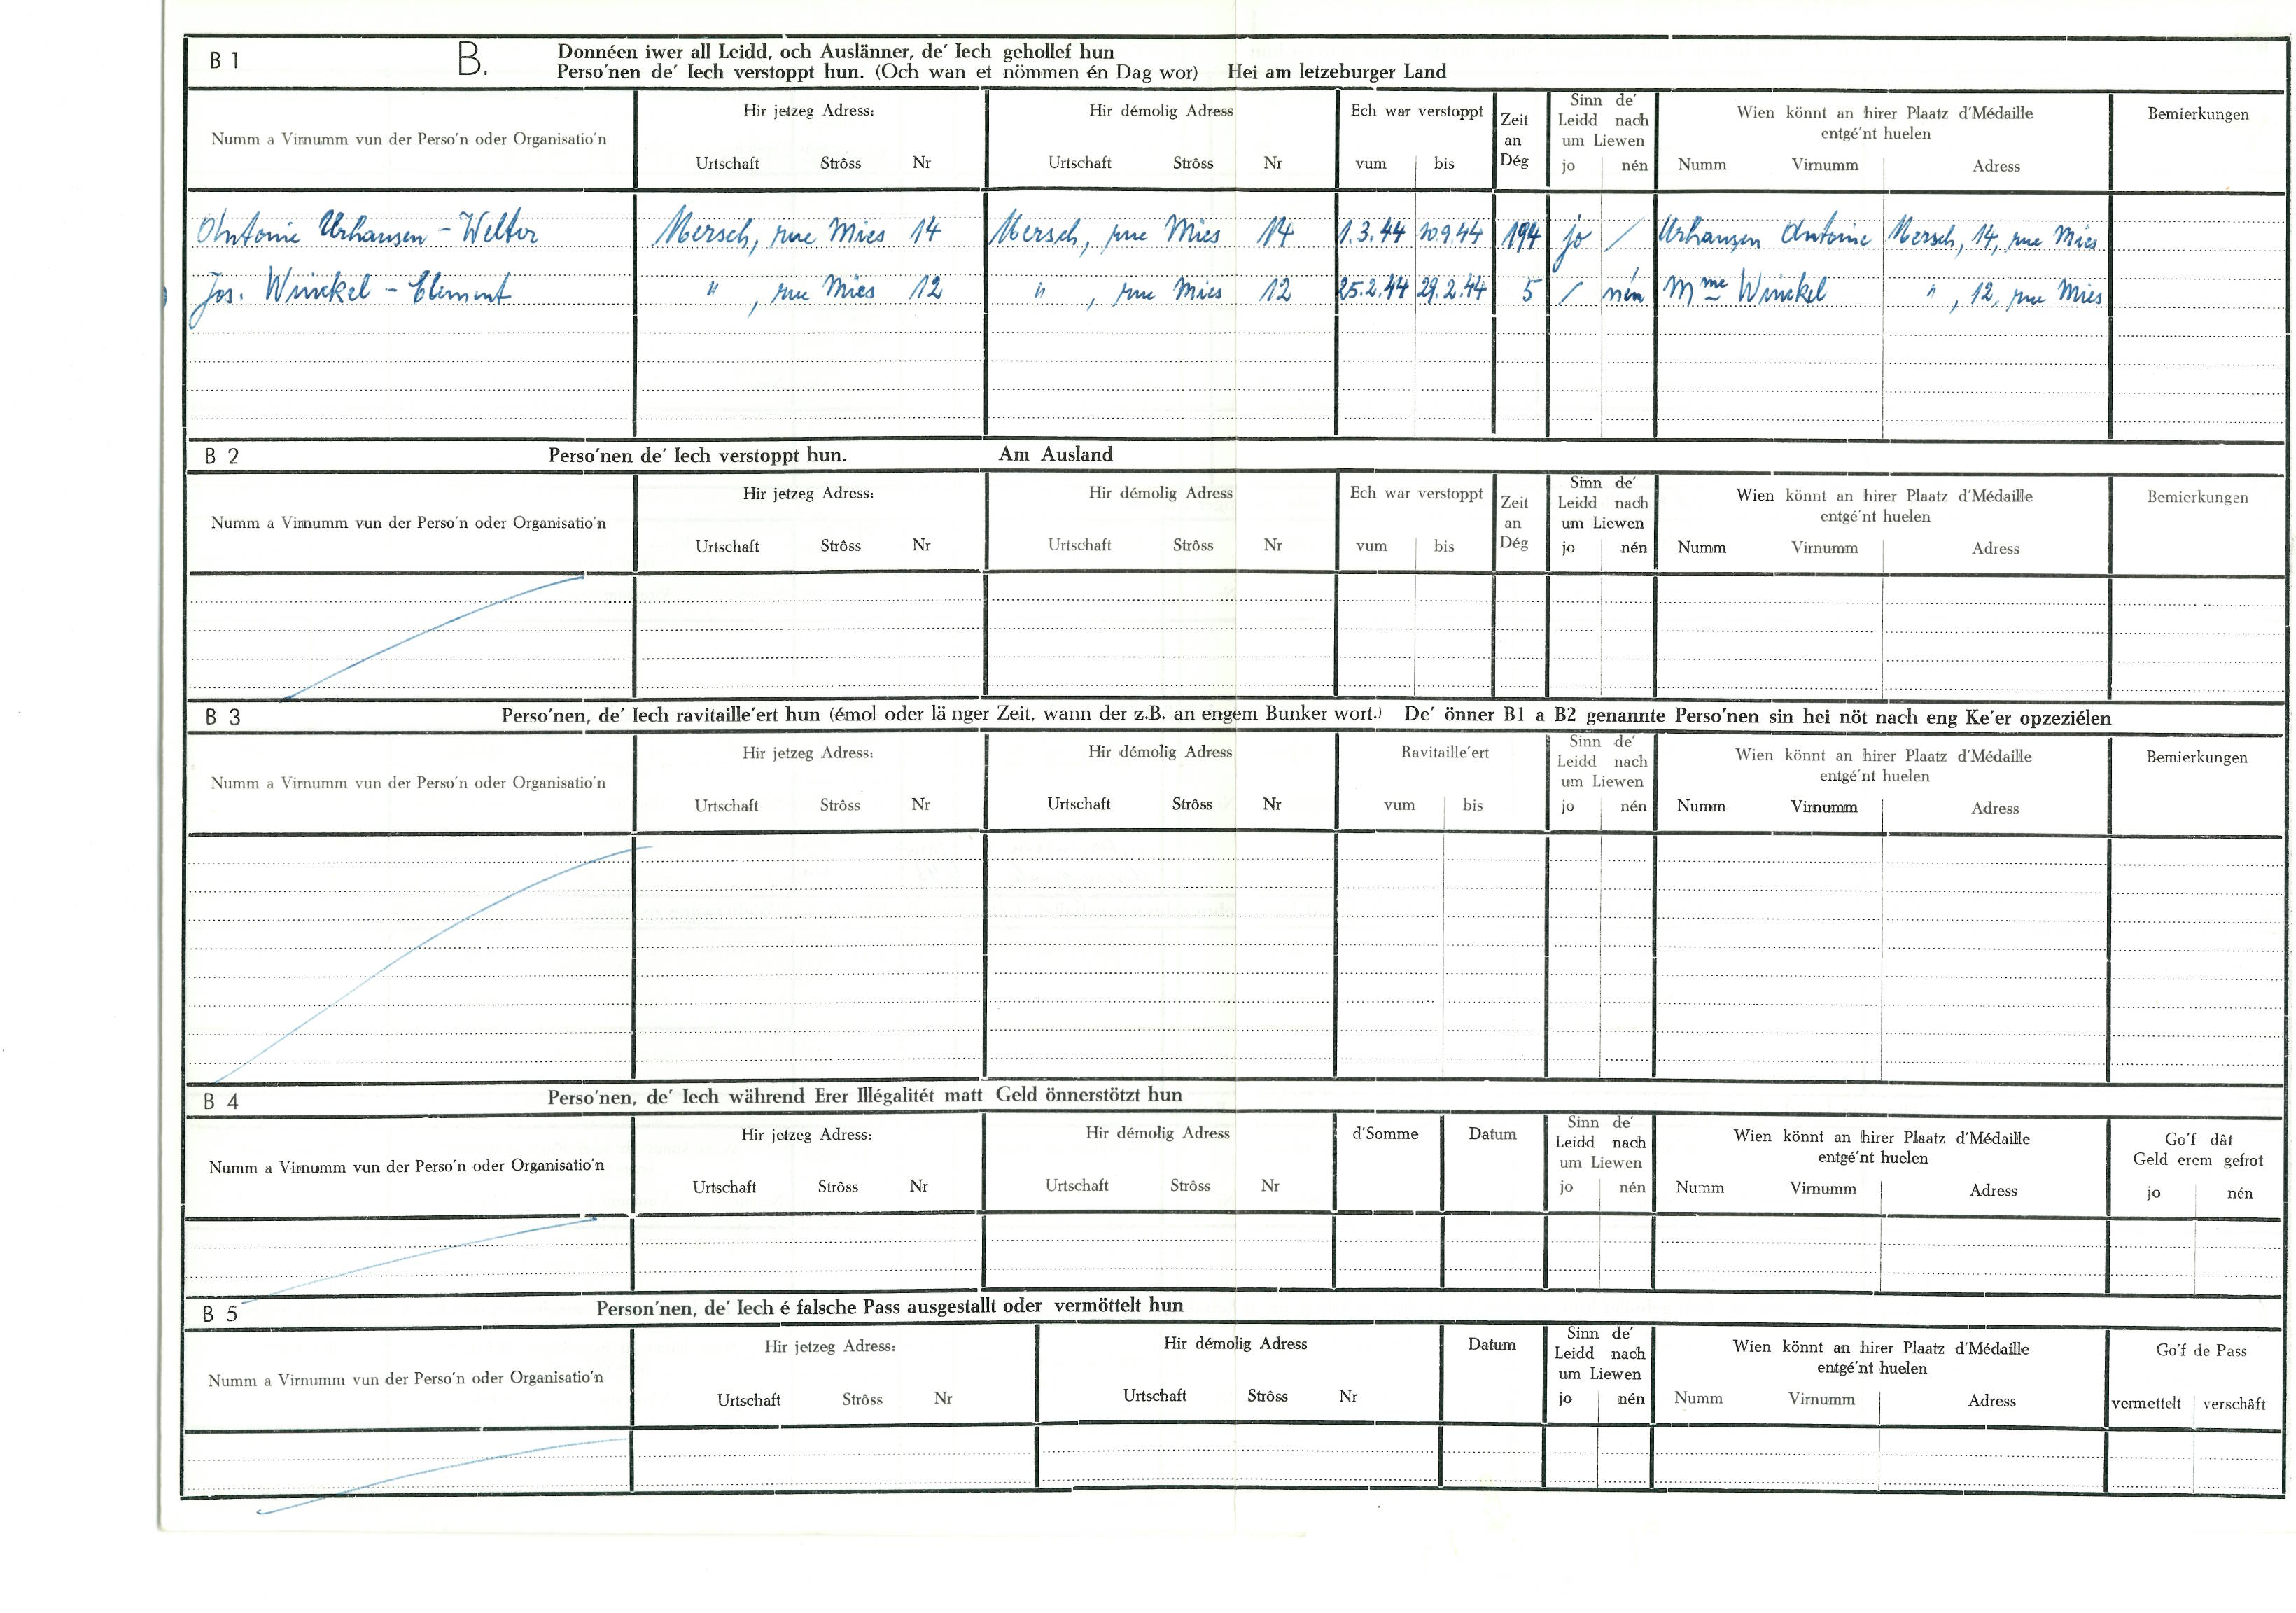 B 1 B. Donnéen iwer all Leidd, och Auslänner, de' Iech gehollef hun
Perso'nen de' Iech verstoppt hun. (Och wan et nömmen én Dag wor) Hei am letzeburger Land
Numm a Virnumm vun der Perso'n oder Organisatio'n
Hir jetzeg Adress:
Urtschaft Strôss Nr
Hir démolig Adress
Urtschaft Strôss Nr
Ech war verstoppt
vum bis
Zeit
an
Dég
Sinn de'
Leidd nach
um Liewen
jo nén
Wien könnt an hirer Plaatz d'Médaille
entgé'nt huelen
Numm Virnumm Adress
Bemierkungen
Antoine Urhausen - Welter Mersch, rue Mies 14 Mersch, rue Mies 14 1.3.44 10.9.44 194 jo / Urhausen Antoine Mersch, 14, rue Mies
Jos. Winckel - Clement " , rue Mies 12 " , rue Mies 12 25.2.44 29.2.44 5 / nén Mme Winckel " , 12, rue Mies
B 2 Perso'nen de' Iech verstoppt hun. Am Ausland
Numm a Virnumm vun der Perso'n oder Organisatio'n
Hir jetzeg Adress:
Urtschaft Strôss Nr
Hir démolig Adress
Urtschaft Strôss Nr
Ech war verstoppt
vum bis
Zeit
an
Dég
Sinn de'
Leidd nach
um Liewen
jo nén
Wien könnt an hirer Plaatz d'Médaille
entgé'nt huelen
Numm Virnumm Adress
Bemierkungen
B 3 Perso'nen, de' Iech ravitaille'ert hun (émol oder länger Zeit, wann der z.B. an engem Bunker wort.) De' önner B1 a B2 genannte Perso'nen sin hei nöt nach eng Ke'er opzeziélen
Numm a Virnumm vun der Perso'n oder Organisatio'n
Hir jetzeg Adress:
Urtschaft Strôss Nr
Hir démolig Adress
Urtschaft Strôss Nr
Ravitaille'ert
vum bis
Sinn de'
Leidd nach
um Liewen
jo nén
Wien könnt an hirer Plaatz d'Médaille
entgé'nt huelen
Numm Virnumm Adress
Bemierkungen
B 4 Perso'nen, de' Iech während Erer Illégalitét matt Geld önnerstötzt hun
Numm a Virnumm vun der Perso'n oder Organisatio'n
Hir jetzeg Adress:
Urtschaft Strôss Nr
Hir démolig Adress
Urtschaft Strôss Nr
d'Somme
Datum
Sinn de'
Leidd nach
um Liewen
jo nén
Wien könnt an hirer Plaatz d'Médaille
entgé'nt huelen
Numm Virnumm Adress
Go'f dât
Geld erem gefrot
jo nén
B 5 Person'nen, de' Iech é falsche Pass ausgestallt oder vermöttelt hun
Numm a Virnumm vun der Perso'n oder Organisatio'n
Hir jetzeg Adress:
Urtschaft Strôss Nr
Hir démolig Adress
Urtschaft Strôss Nr
Datum
Sinn de'
Leidd nach
um Liewen
jo nén
Wien könnt an hirer Plaatz d'Médaille
entgé'nt huelen
Numm Virnumm Adress
Go'f de Pass
vermettelt verschâft